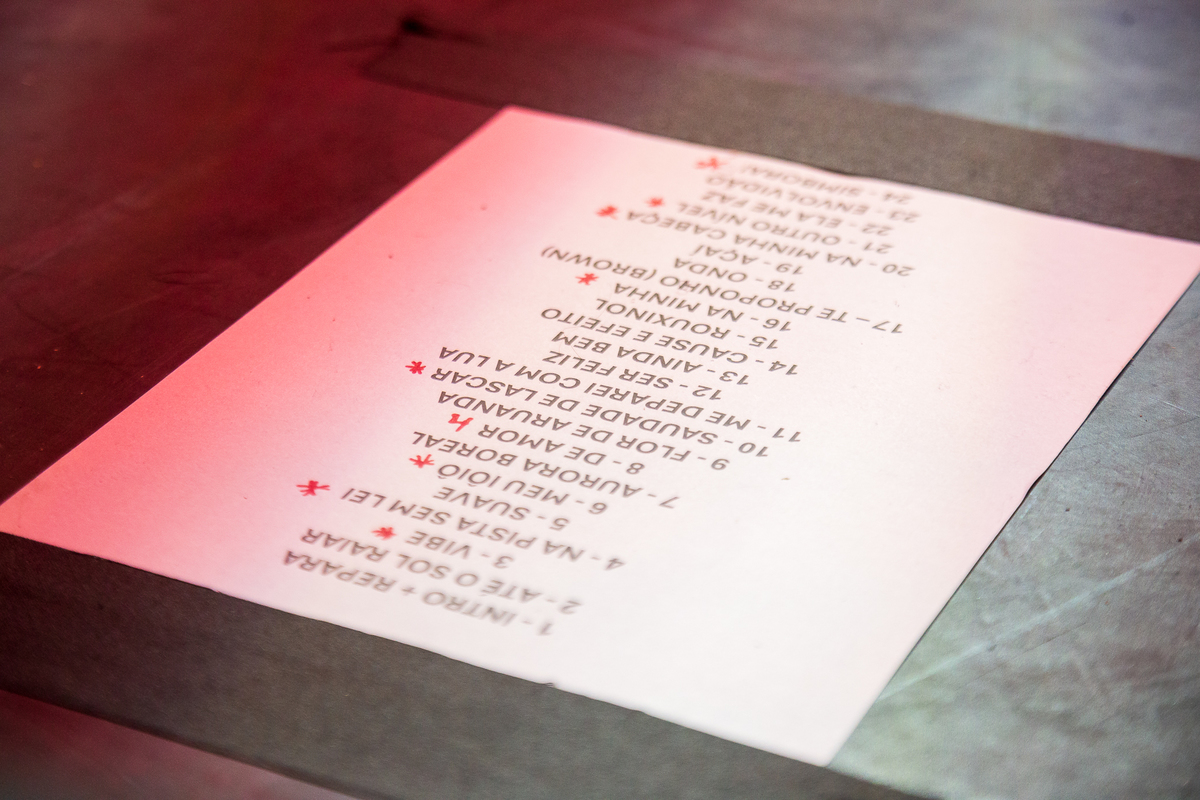 1 - INTRO + REPARA
2 - ATÉ O SOL RAIAR
3 - VIBE *
4 - NA PISTA SEM LEI *
5 - SUAVE
6 - MEU IÔIÔ *
7 - AURORA BOREAL
8 - DE AMOR
9 - FLOR DE ARUANDA
10 - SAUDADE DE LASCAR *
11 - ME DEPAREI COM A LUA
12 - SER FELIZ
13 - AINDA BEM
14 - CAUSE E EFEITO
15 - ROUXINOL
16 - NA MINHA *
17 – TE PROPONHO (BROWN)
18 - ONDA
19 - AÇAÍ
20 - NA MINHA CABEÇA *
21 - OUTRO NÍVEL *
22 - ELA ME FAZ
23 - ENVOLVIDÃO
24 - SIMBORA! *